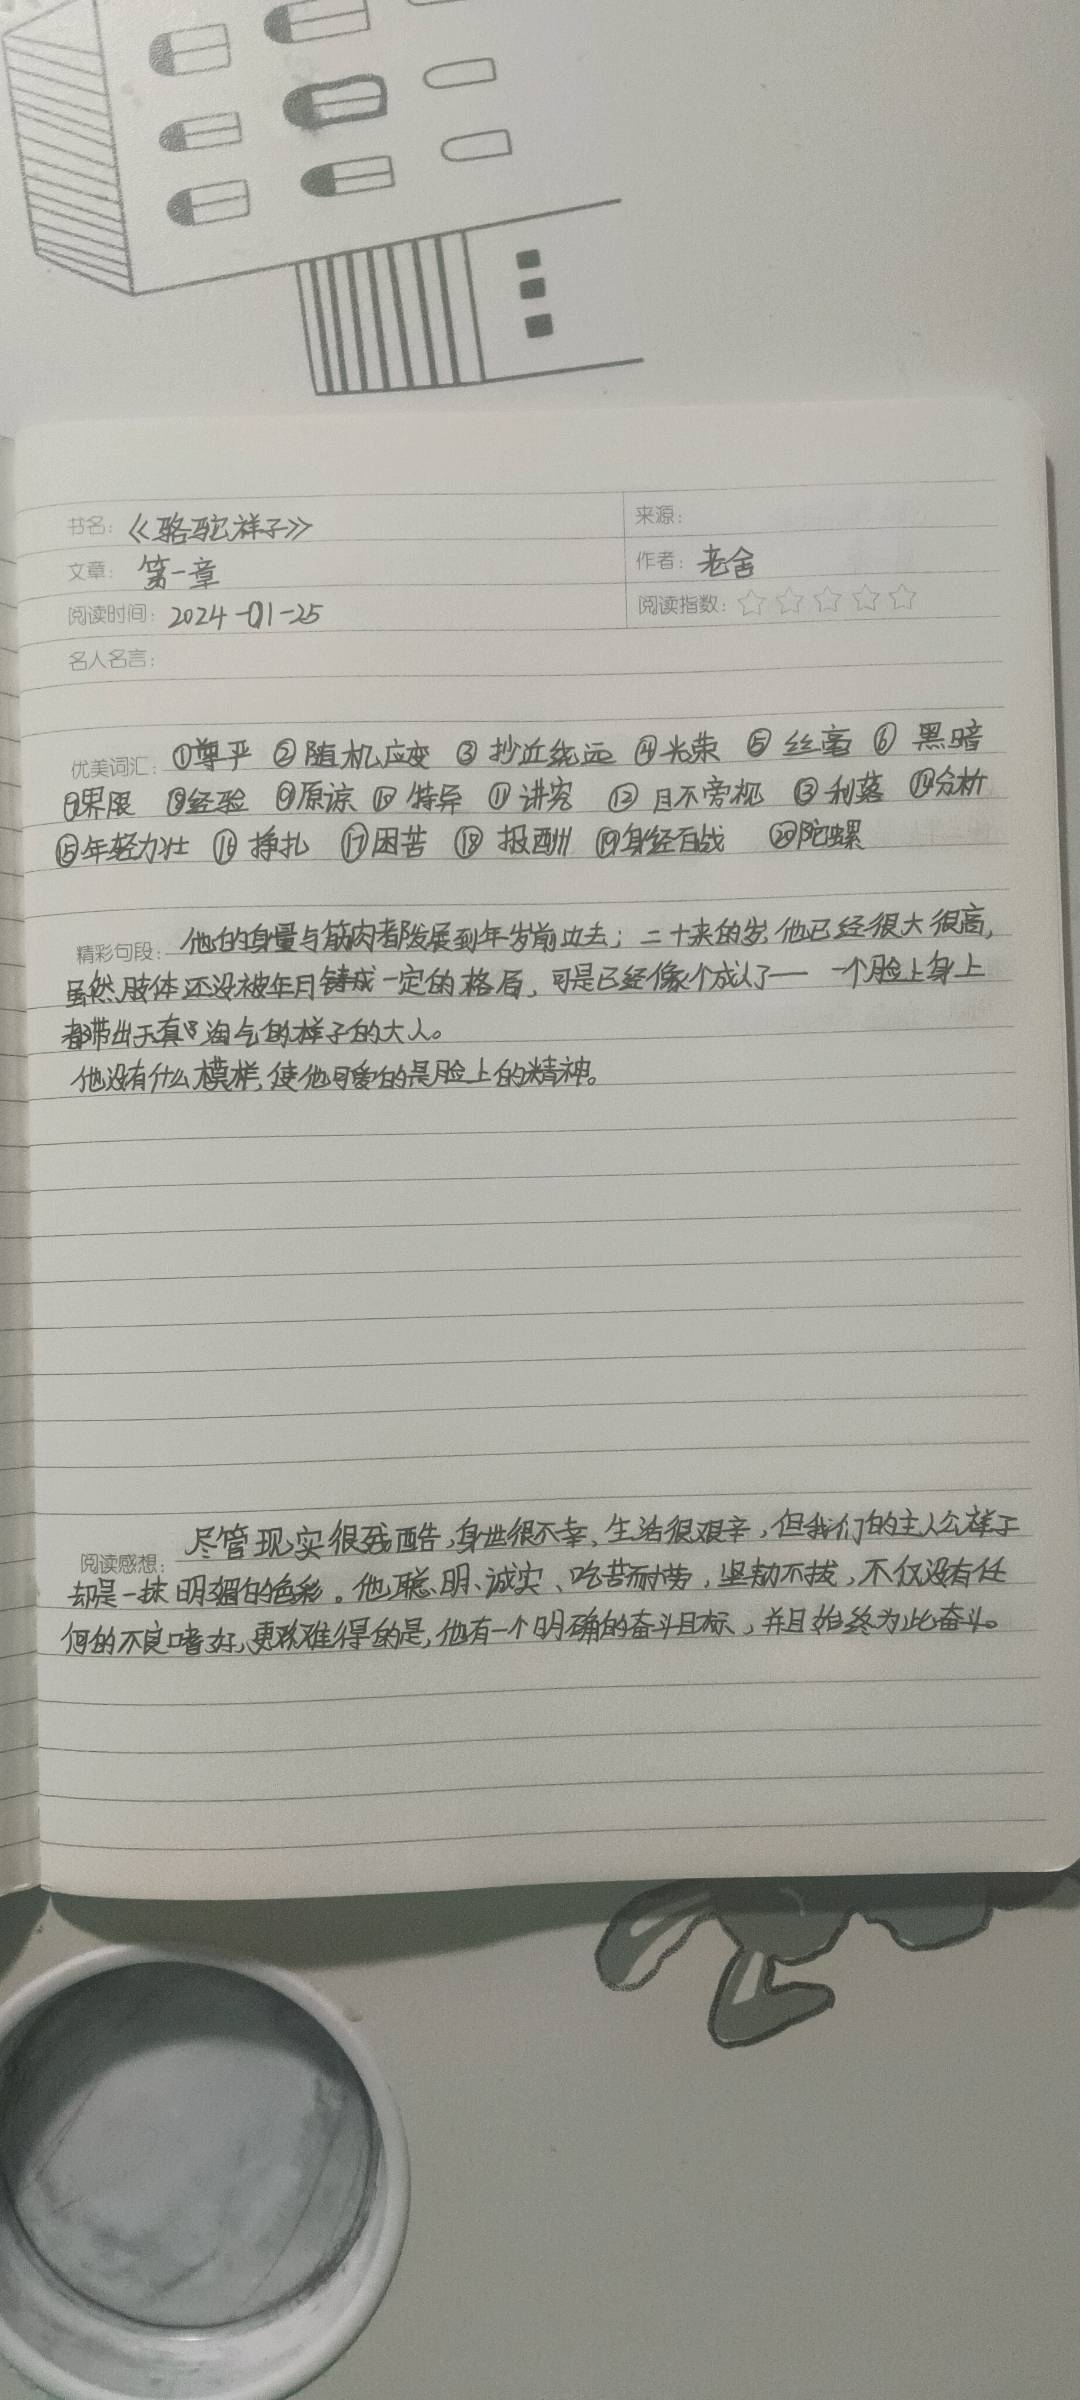 书名：《骆驼祥子》 来源：
文章：第一章 作者：老舍
阅读时间：2024-01-25 阅读指数：
名人名言：
优美词汇：①尊严 ②随机应变 ③抄近绕远 ④光荣 ⑤丝毫 ⑥黑暗
⑦界限 ⑧经验 ⑨原谅 ⑩特异 ⑪讲究 ⑫目不旁视 ⑬利落 ⑭分析
⑮年轻力壮 ⑯挣扎 ⑰困苦 ⑱报酬 ⑲身经百战 ⑳陀螺
精彩句段：他的身量与筋肉都发展到年岁前边去；二十来的岁，他已经很大很高，
虽然肢体还没被年月铸成一定的格局，可是已经像个成人了——一个脸上身上
都带出天真淘气的样子的大人。
他没有什么模样，使他可爱的是脸上的精神。
阅读感想：尽管现实很残酷，身世很不幸、生活很艰辛，但我们的主人公祥子
却是一抹明媚的色彩。他聪明、诚实、吃苦耐劳，坚韧不拔，不仅没有任
何的不良嗜好，更难得的是，他有一个明确的奋斗目标，并且始终为此奋斗。